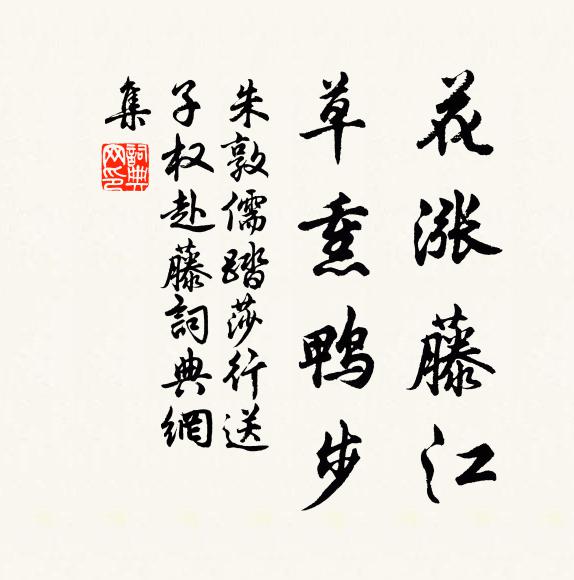 花涨藤江
草熏鸭步
朱敦儒踏莎行送
子权赴藤詞典網
集
詞典网印